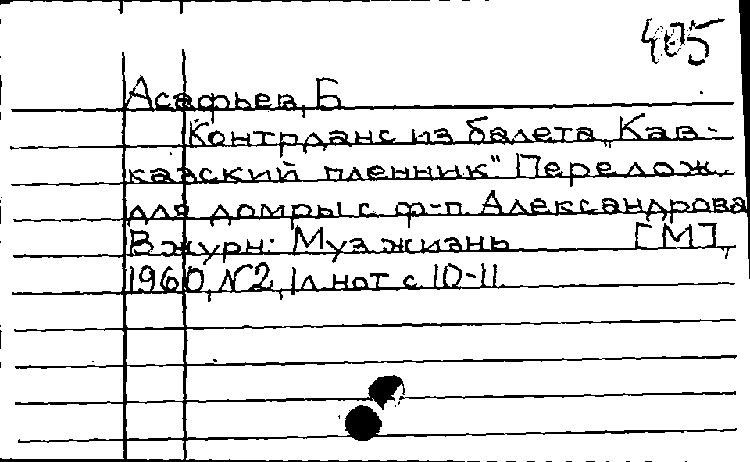 405
Асафьев, Б
Контрданс из балета „Кав-
казский пленник" Перелож.
для домры с ф-п. Александрова
В журн: Муз жизнь [М],
1960, №2, 1л нот с 10-11.